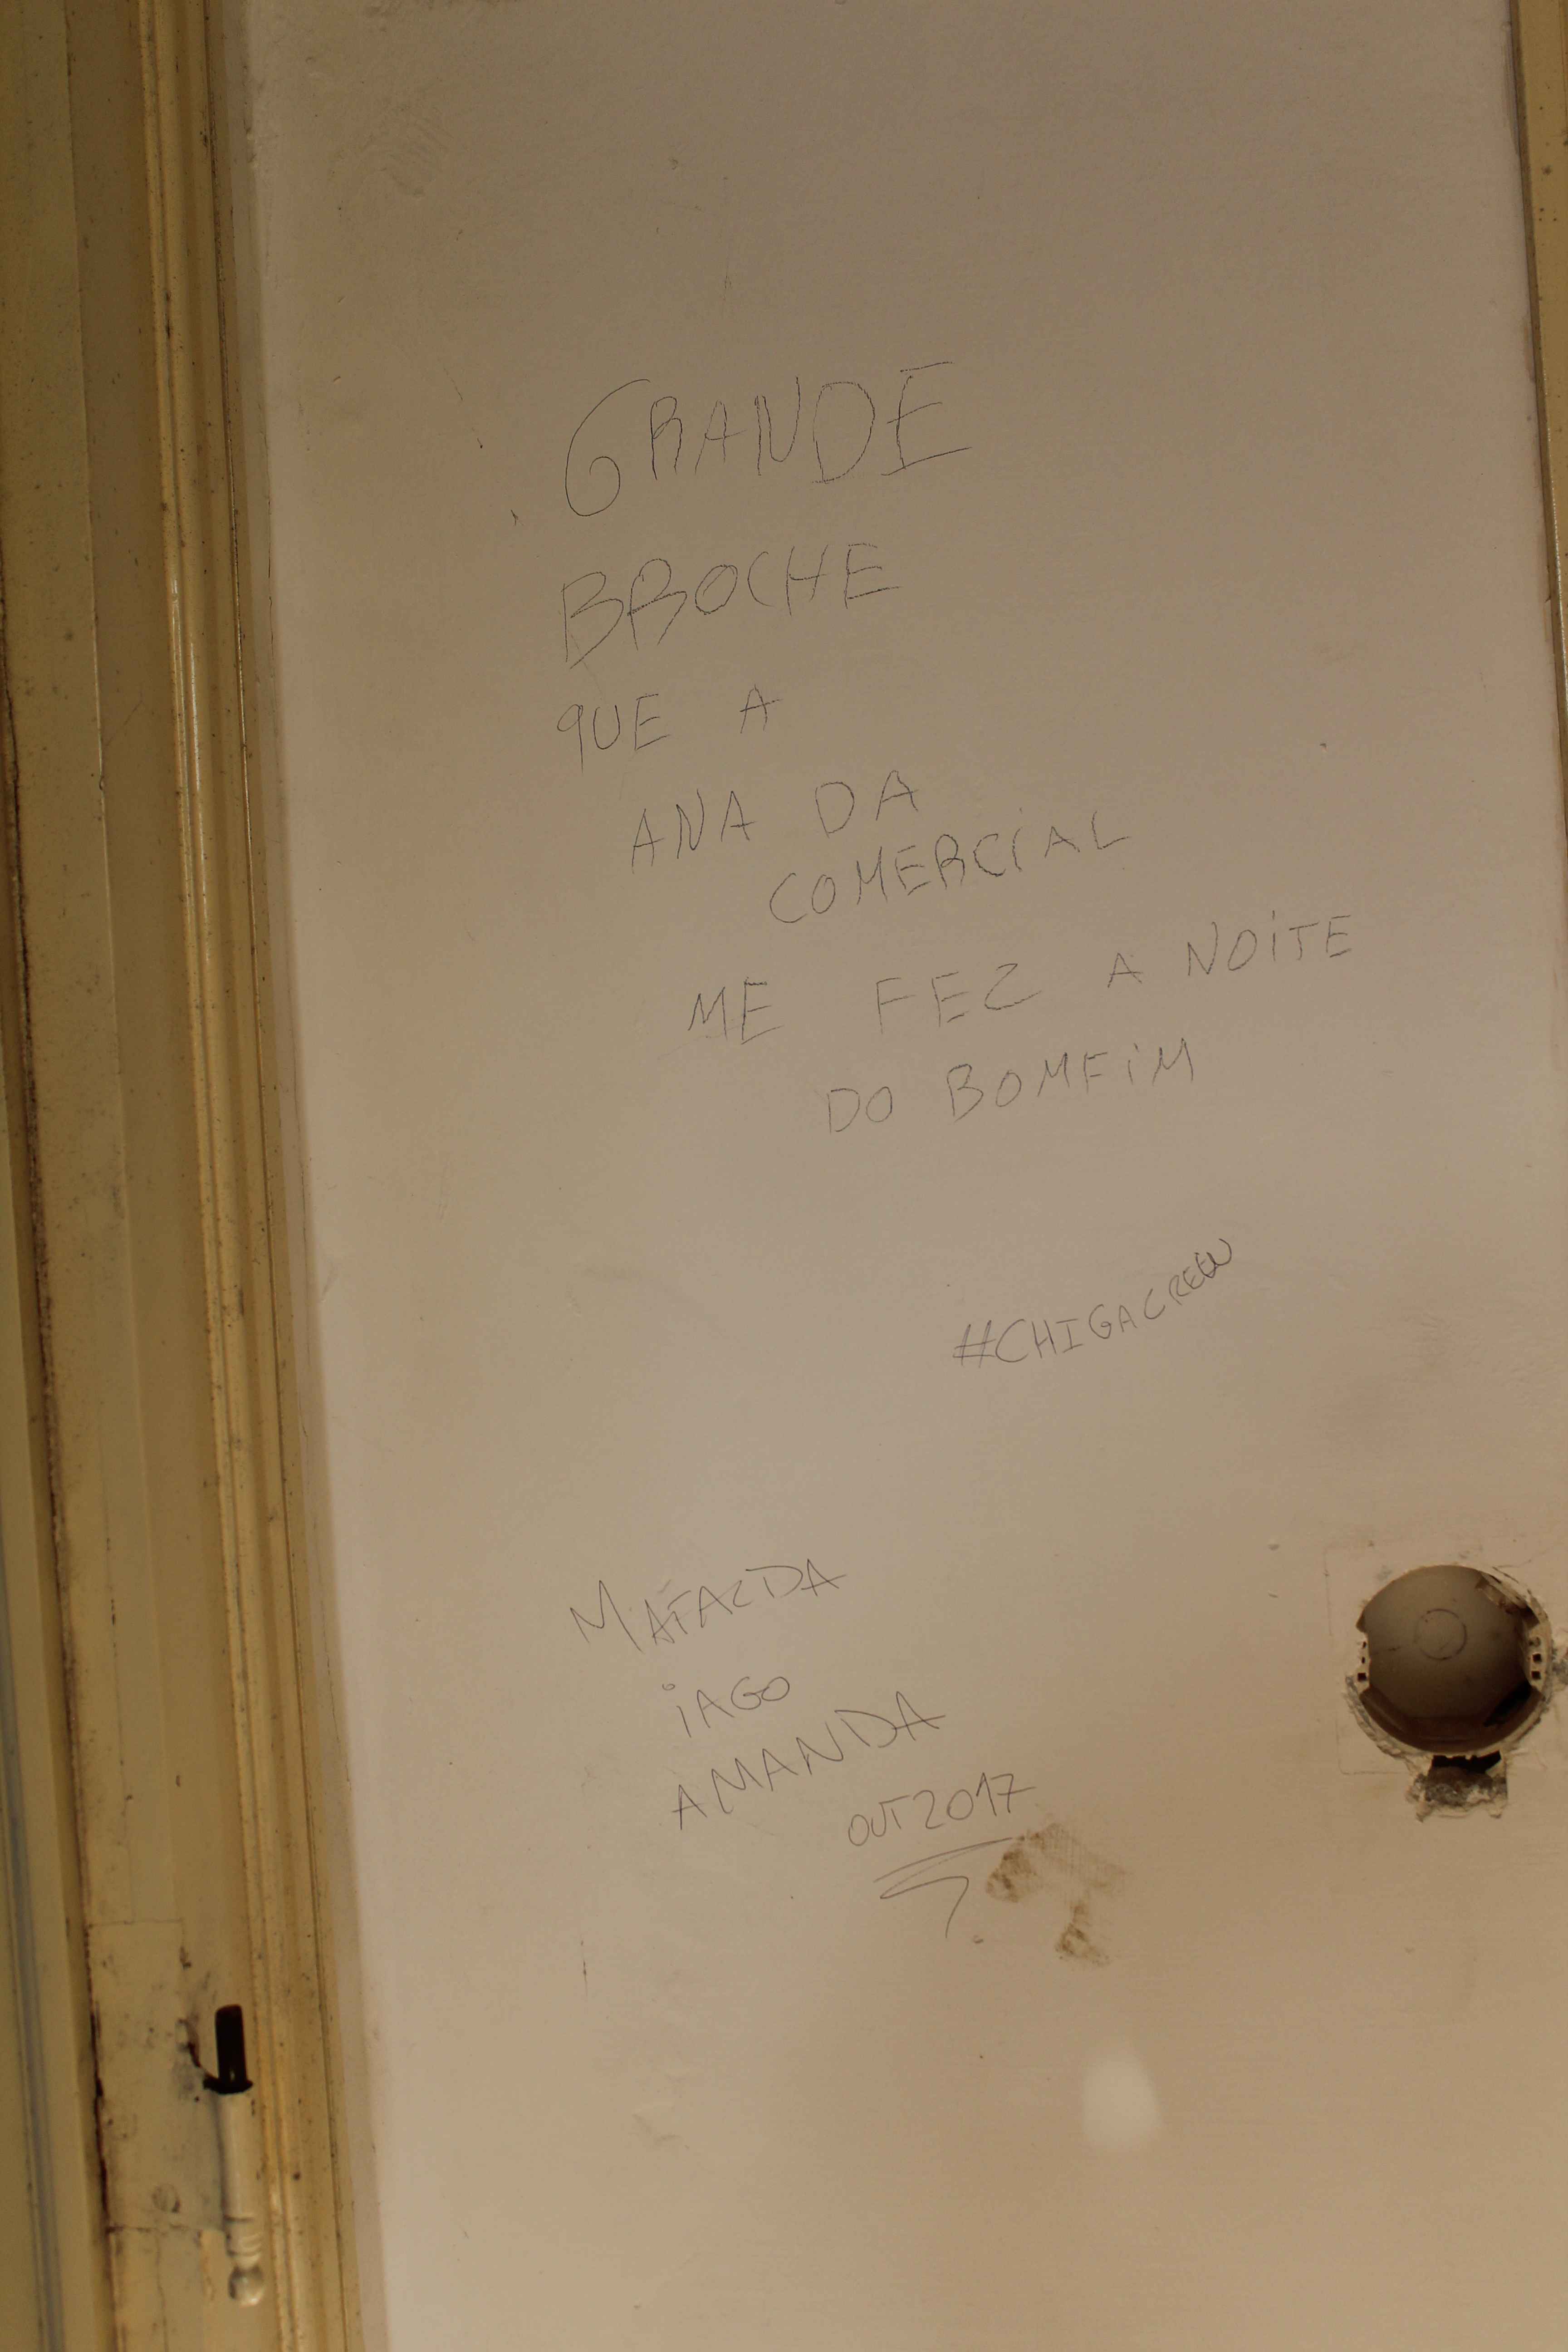 GRANDE
BROCHE
QUE A
ANA DA
COMERCIAL
ME FEZ A NOITE
DO BOMFIM
#CHIGACREW
MAFALDA
IAGO
AMANDA
OUT2017